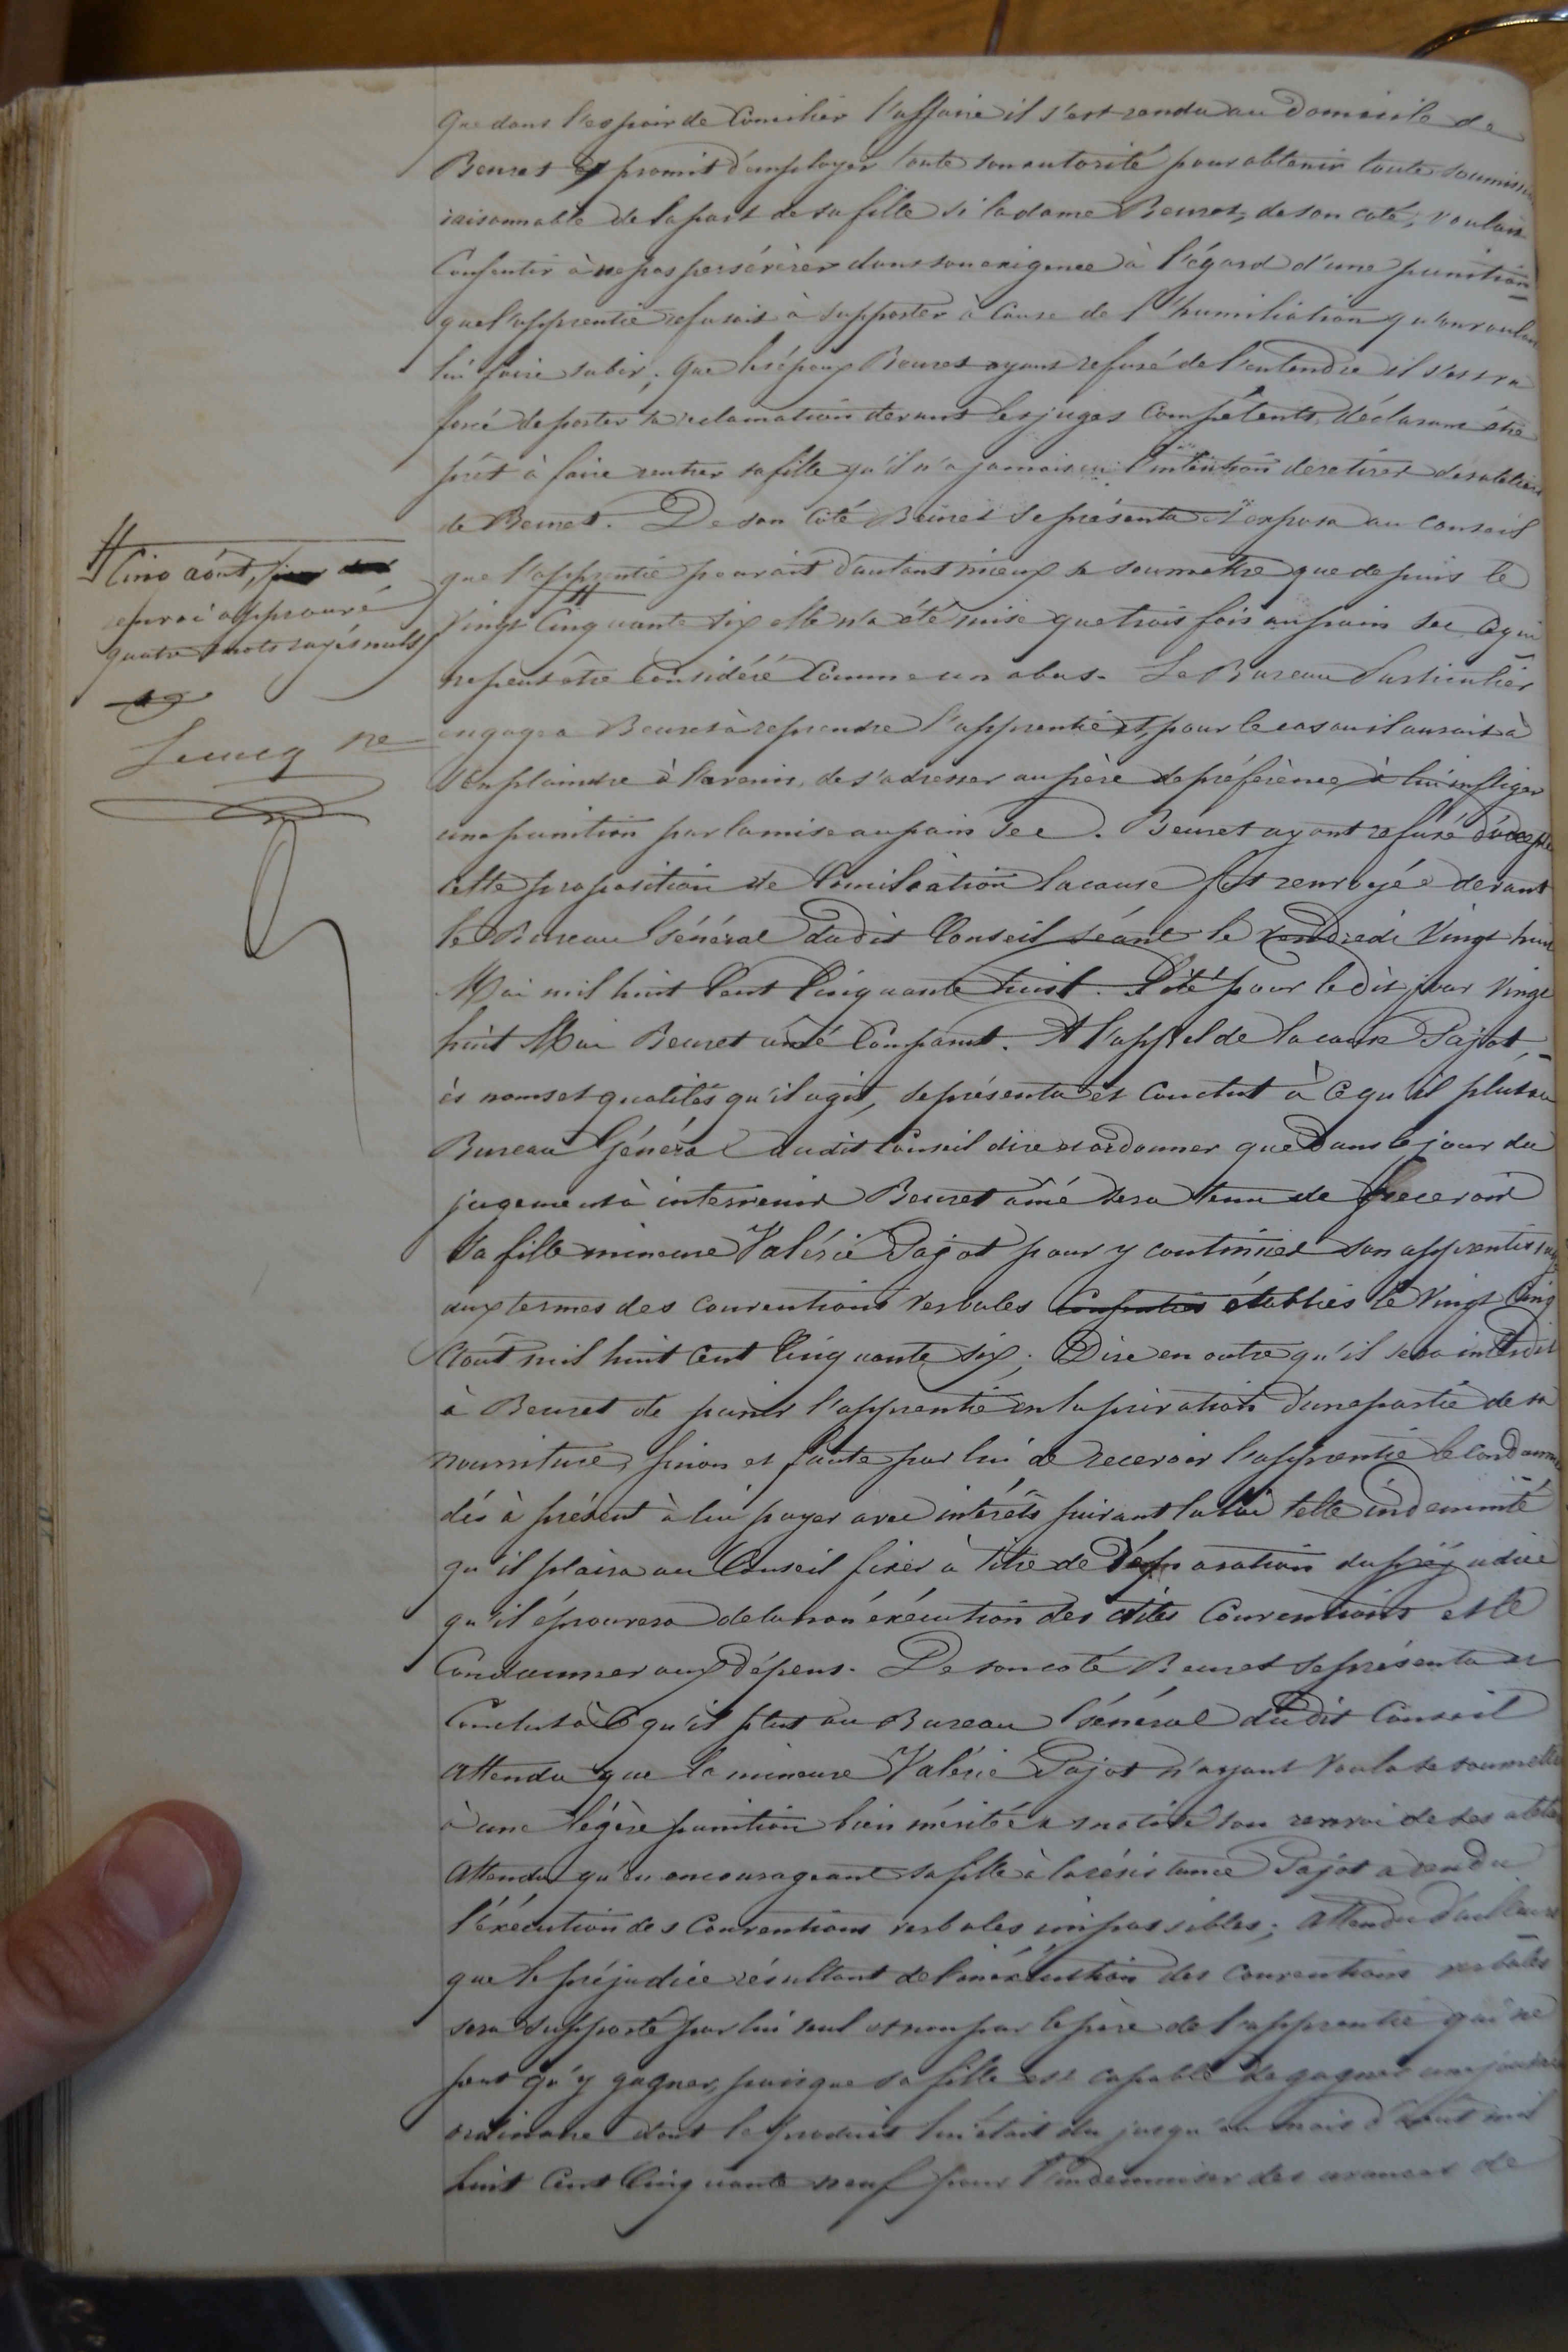 Que dans l'espoir de Concilier l'affaire il s'est rendu au Domicile de
Beuret et promit d'employer toute son autorité pour obtenir toute soumission
raisonnable de la part de sa fille si la dame Beuret, de son coté, voulait
Consentir à ne pas persévérer dans son exigence à l'égard d'une punition
que l'apprentie refusait à supporter à Cause de l'humiliation qu'on voulait
lui faire subir; Que les époux Beuret ayant refusé de l'entendre il s'est vu
forcé de porter sa réclamation devant les juges Compétents, déclarant être
prêt à faire rentrer sa fille qu'il n'a jamais eu l'intention de retirer des ateliers
de Beuret. De son Coté Beuret se présenta et exposa au Conseil
que l'apprentie pouvait d'autant mieux se soumettre que depuis le
Vingt Cinquante six elle n'a été mise que trois fois au pain sec Ce qui
ne peut être Considéré Comme un abus. Le Bureau Particulier
engagea Beuret à reprendre l'apprentie et pour le cas ou il aurait à
s'en plaindre à l'avenir, de s'adresser au père de préférence à lui infliger
une punition par la mise au pain sec. Beuret ayant refusé d'accepter
cette proposition de Conciliation la cause fut renvoyée devant
le Bureau Général dudit Conseil séant le Vendredi Vingt huit
Mai mil huit Cent Cinquante huit. Cité pour le dit jour Vingt
huit Mai Beuret ainé Comparut. A l'appel de la cause Pajot,
ès noms et qualités qu'il agit, se présenta et Conclut à Ce qu'il plut au
Bureau Général dudit Conseil dire et ordonner que Dans le jour du
jugement à intervenir Beuret ainé sera tenu de recevoir
Sa fille mineure Valérie Pajot pour y continuer son apprentissage
aux termes des Conventions Verbales établies le Vingt Cinq
Août mil huit Cent Cinquante six; Dire en outre qu'il sera interdit
à Beuret de punir l'apprentie en la privation d'une partie de sa
nourriture, sinon et faute par lui de recevoir l'apprentie le Condamner
dès à présent à lui payer avec intérêts suivant la loi telle indemnité
qu'il plaira au Conseil fixer à titre de réparation du préjudice
qu'il éprouvera de la non exécution des dites Conventions et le
Condamner aux Dépens. De son coté Beuret se présenta et
Conclut à Ce qu'il plut au Bureau Général du dit Conseil
Attendu que la mineure Valérie Pajot n'ayant voulu se soumettre
à une légère punition bien méritée a motivé son renvoi de ses ateliers
Attendu qu'en encourageant sa fille à la résistance Pajot a rendu
l'éxécution des Conventions verbales impossibles; Attendu d'ailleurs
que le préjudice résultant de l'inéxécution des Conventions verbales
sera supporté par lui seul et non par le père de l'apprentie qui ne
peut qu'y gagner, puisque sa fille est capable de gagner une journée
ordinaire dont le produit lui était du jusqu'au mois d'Août mil
huit Cent Cinquante neuf pour l'indemniser des avances de
Cinq août,
renvoi approuvé
quatre mots rayés nuls
Lecucq